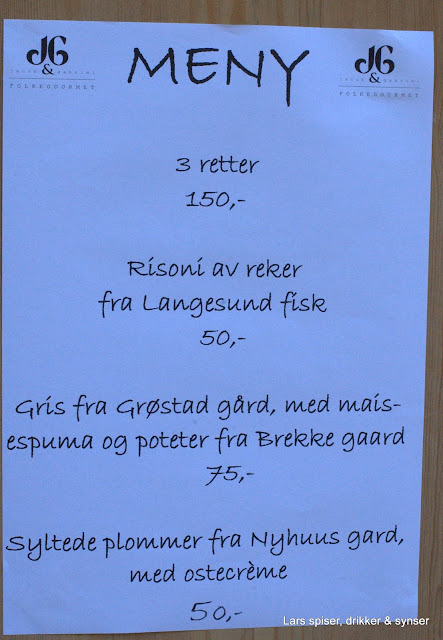 JG
&
FOLKEGOURMET
MENY
JG
&
FOLKEGOURMET
3 retter
150,-
Risoni av reker
fra Langesund fisk
50,-
Gris fra Grøstad gård, med mais-
espuma og poteter fra Brekke gaard
75,-
Syltede plommer fra Nyhuus gard,
med ostecrème
50,-
Lars spiser, drikker & synser